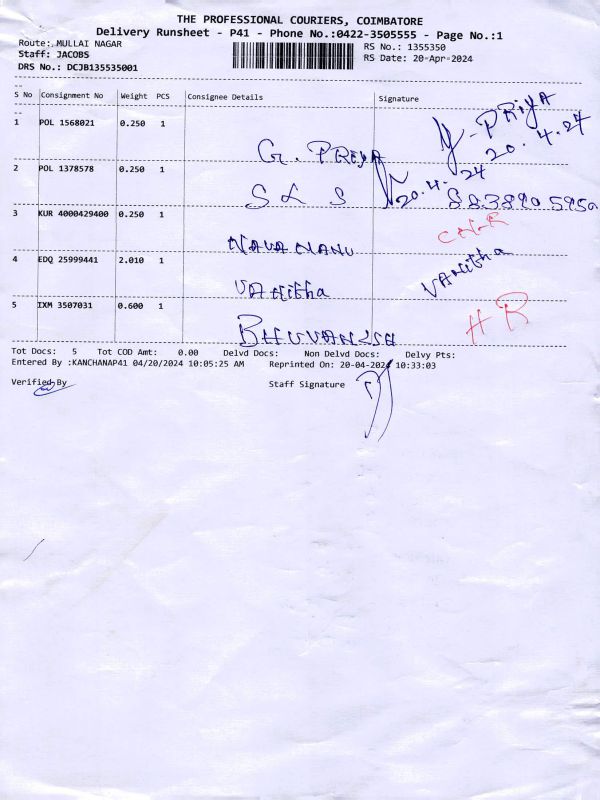 THE PROFESSIONAL COURIERS, COIMBATORE
Delivery Runsheet - P41 - Phone No.:0422-3505555 - Page No.:1
Route: MULLAI NAGAR
RS No.: 1355350
Staff: JACOBS
RS Date: 20-Apr-2024
DRS No.: DCJB135535001
S No Consignment No Weight PCS Consignee Details Signature
1 POL 1568021 0.250 1 G. PRIYA PRIYA 20.4.24
2 POL 1378578 0.250 1 S L S 20.4.24
3 KUR 4000429400 0.250 1
4 EDQ 25999441 2.010 1 VANitha VANitha
5 IXM 3507031 0.600 1 H R
Tot Docs: 5 Tot COD Amt: 0.00 Delvd Docs: Non Delvd Docs: Delvy Pts:
Entered By :KANCHANAP41 04/20/2024 10:05:25 AM Reprinted On: 20-04-2024 10:33:03
Verified By Staff Signature